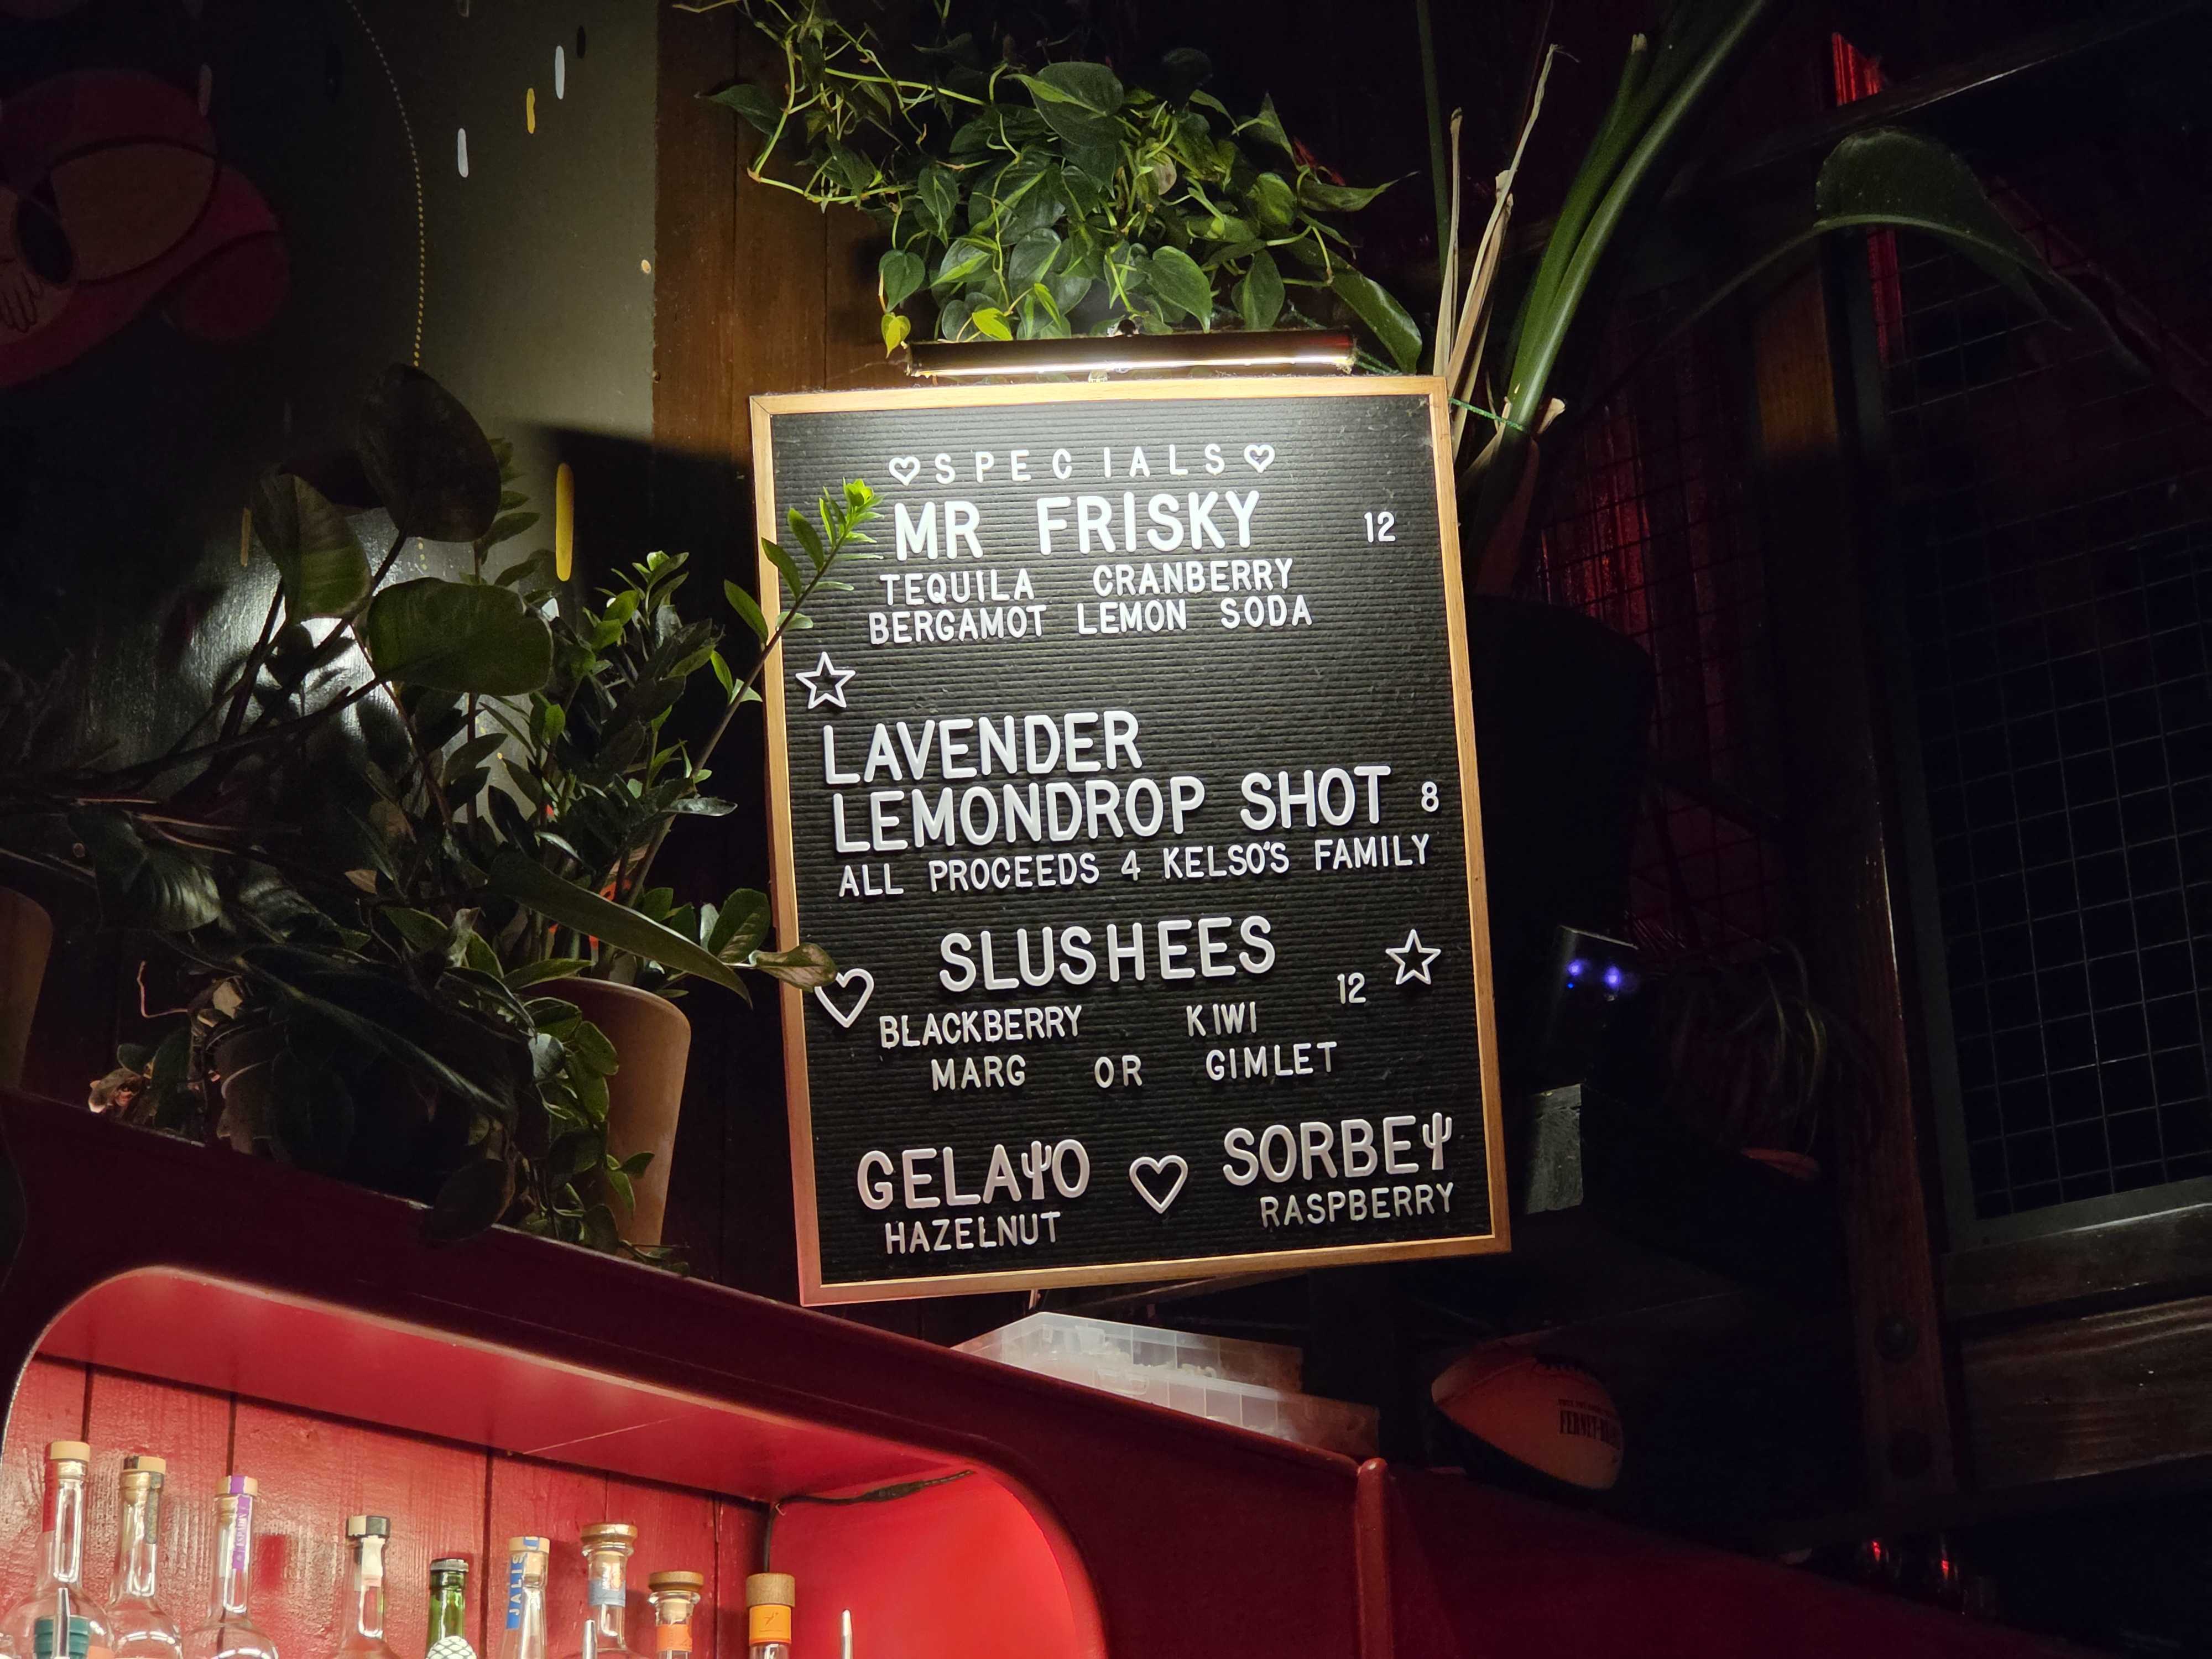 SPECIALS
MR FRISKY 12
TEQUILA CRANBERRY
BERGAMOT LEMON SODA
LAVENDER
LEMONDROP SHOT 8
ALL PROCEEDS 4 KELSO'S FAMILY
SLUSHEES
12
BLACKBERRY KIWI
MARG OR GIMLET
GELATO SORBET
HAZELNUT RASPBERRY
JALIS